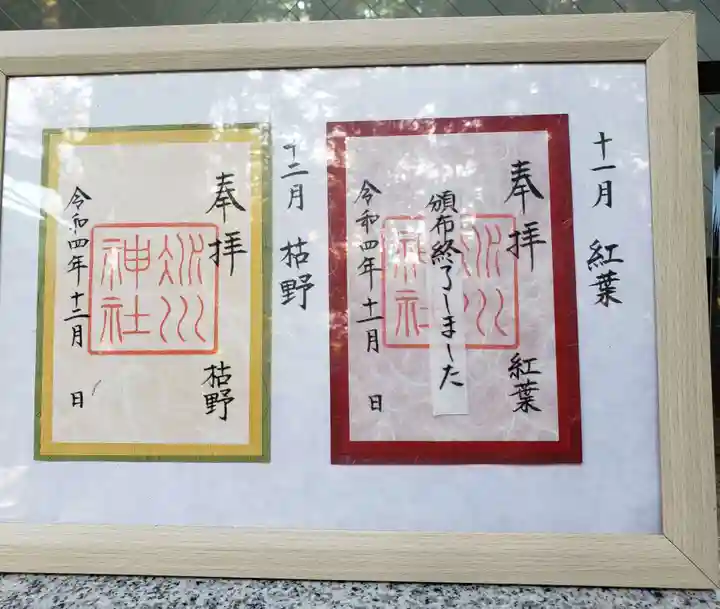 十一月 紅葉
奉拝 紅葉
氷川
神社
頒布終了しました
令和四年十一月 日
十二月 枯野
奉拝 枯野
氷川
神社
令和四年十二月 日